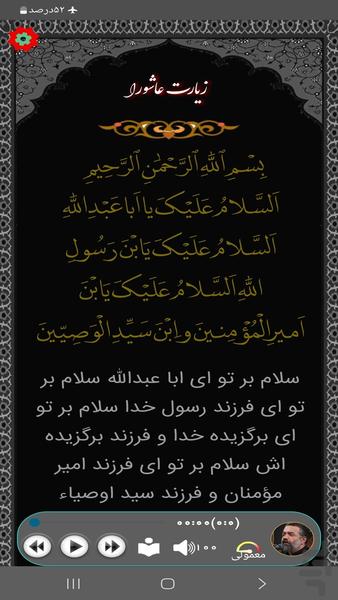 ۵۲درصد
زیارت عاشورا
بِسْمِ اللهِ الرَّحْمٰنِ الرَّحِیمِ
اَلسَّلامُ عَلَیْکَ یا اَبا عَبْدِاللهِ
اَلسَّلامُ عَلَیْکَ یَابْنَ رَسُولِ
اللهِ اَلسَّلامُ عَلَیْکَ یَابْنَ
اَمیرِالْمُؤْمِنینَ وابْنَ سَیِّدِ الْوَصِیّینَ
سلام بر تو ای ابا عبدالله سلام بر
تو ای فرزند رسول خدا سلام بر تو
ای برگزیده خدا و فرزند برگزیده
اش سلام بر تو ای فرزند امیر
مؤمنان و فرزند سید اوصیاء
00:00(0:0)
100
معمولی